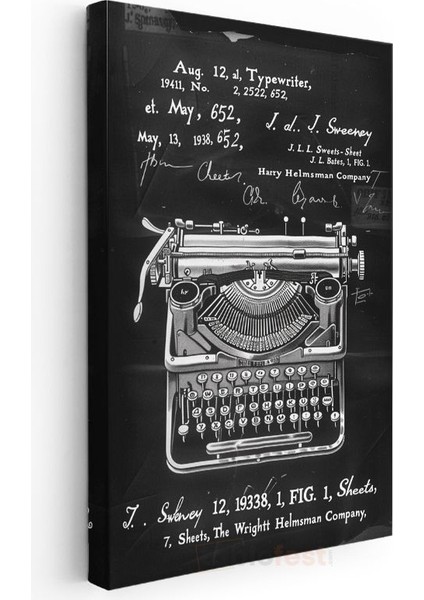 Aug. 12, al, Typewriter,
19411, No. 2, 2522, 652,
et. May, 652,
J. al.. J. Sweeney
May, 13, 1938, 652,
J. L. L. Sweets-Sheet
J. L. Bates, 1, FIG. 1.
Harry Helmsman Company
Cheets,
12, 19338, 1, FIG. 1, Sheets,
7, Sheets, The Wrightt Helmsman Company,